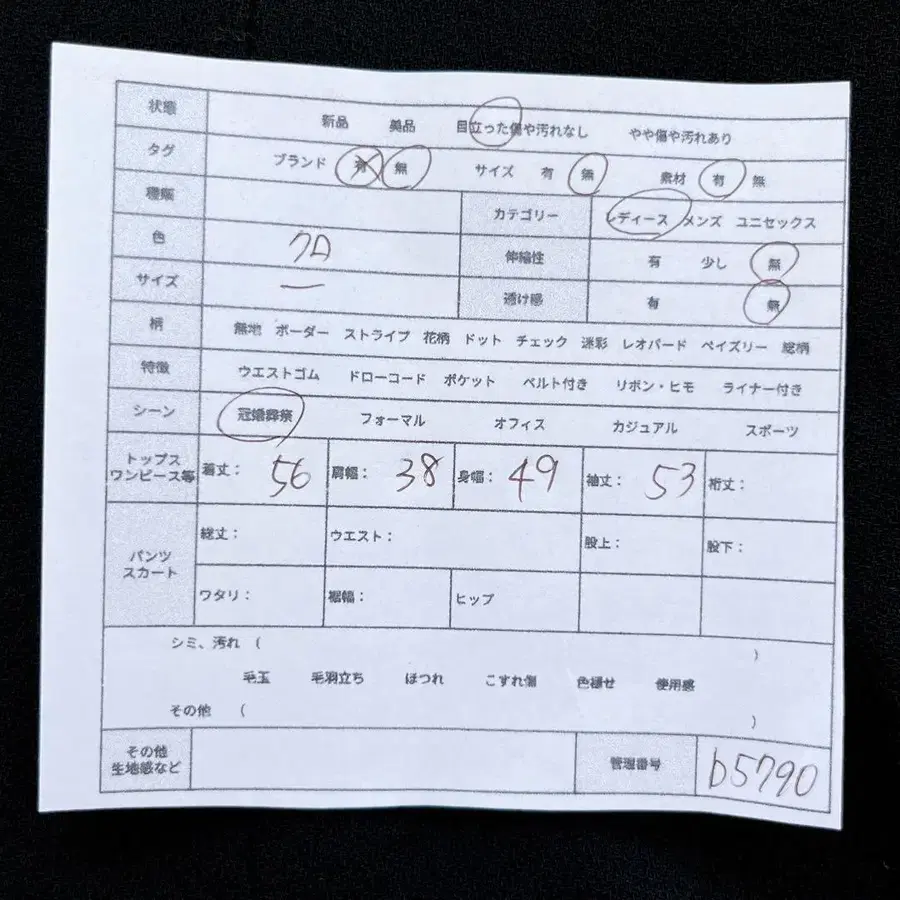 状態 新品 美品 目立った傷や汚れなし やや傷や汚れあり
タグ ブランド 有 無 サイズ 有 無 素材 有 無
種類 カテゴリー レディース メンズ ユニセックス
色 クロ 伸縮性 有 少し 無
サイズ ー 透け感 有 無
柄 無地 ボーダー ストライプ 花柄 ドット チェック 迷彩 レオパード ペイズリー 総柄
特徴 ウエストゴム ドローコード ポケット ベルト付き リボン・ヒモ ライナー付き
シーン 冠婚葬祭 フォーマル オフィス カジュアル スポーツ
トップス
ワンピース等 着丈: 56 肩幅: 38 身幅: 49 袖丈: 53 裄丈:
パンツ
スカート
総丈: ウエスト: 股上: 股下:
ワタリ: 裾幅: ヒップ
シミ、汚れ ( )
毛玉 毛羽立ち ほつれ こすれ傷 色褪せ 使用感
その他 ( )
その他
生地感など 管理番号 b5790